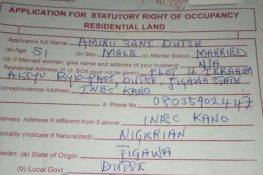 APPLICATION FOR STATUTORY RIGHT OF OCCUPANCY
RESIDENTIAL LAND
Applicant's full Name AMINU SANI DUTSE
(a) Age 51 (b) Sex MALE (c) Marital Status MARRIED
(d) If Married woman, give name and address of your husband N/A
Residential Address (P.O. BOX must not be given) PLOT 12 IBRAHIM
ALIYU BYE-PASS DUTSE, JIGAWA STATE
Correspondence Address INEC KANO
4. Phone No 08035902447
Business Address if different from 3 above: INEC KANO
Nationality (Indicate if Naturalized) NIGERIAN
(a) State of Origin JIGAWA
(b) Local Govt DUTSE